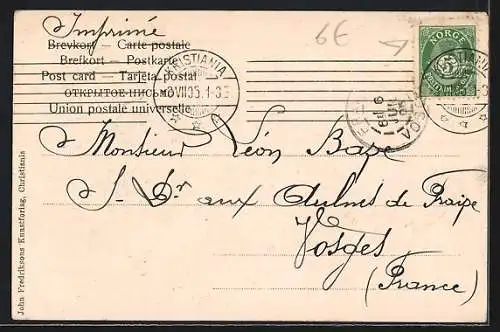 Imprimé
6E
Brevkort — Carte postale
Brefkort — Postkarte
Post card — Tarjeta postal
ОТКРЫТОЕ ПИСЬМО
Union postale universelle
KRISTIANIA
VII 05. 1-8 E
A
NORGE
5
6
JUIL
Monsieur Léon
S. Dr aux Aulnes de
Vosges
(France)
John Fredriksons Kunstforlag, Christiania